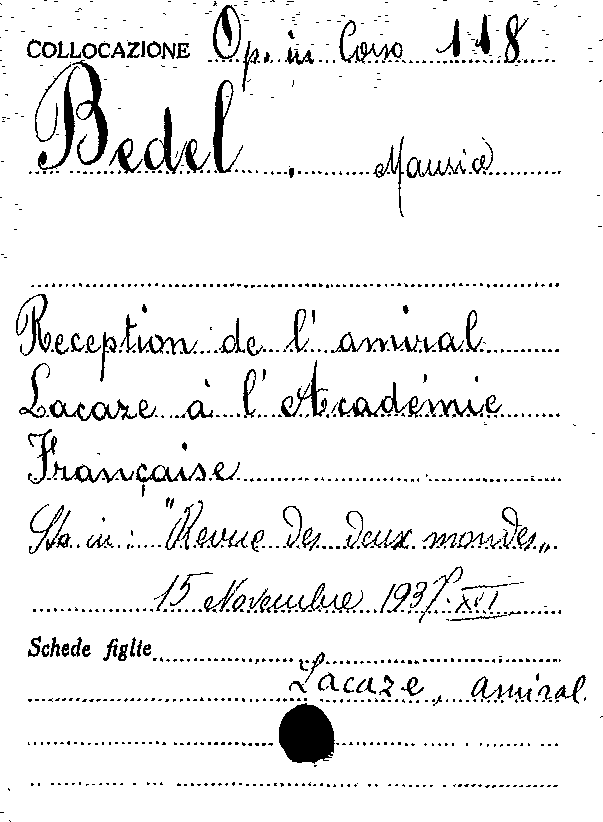 COLLOCAZIONE Op. in Corso 118
Bedel, Maurice
Reception de l'amiral
Lacaze à l'Académie
Française
Sta in: "Revue des deux mondes„
15 Novembre 1937. XVI
Schede figlie
Lacaze, amiral.